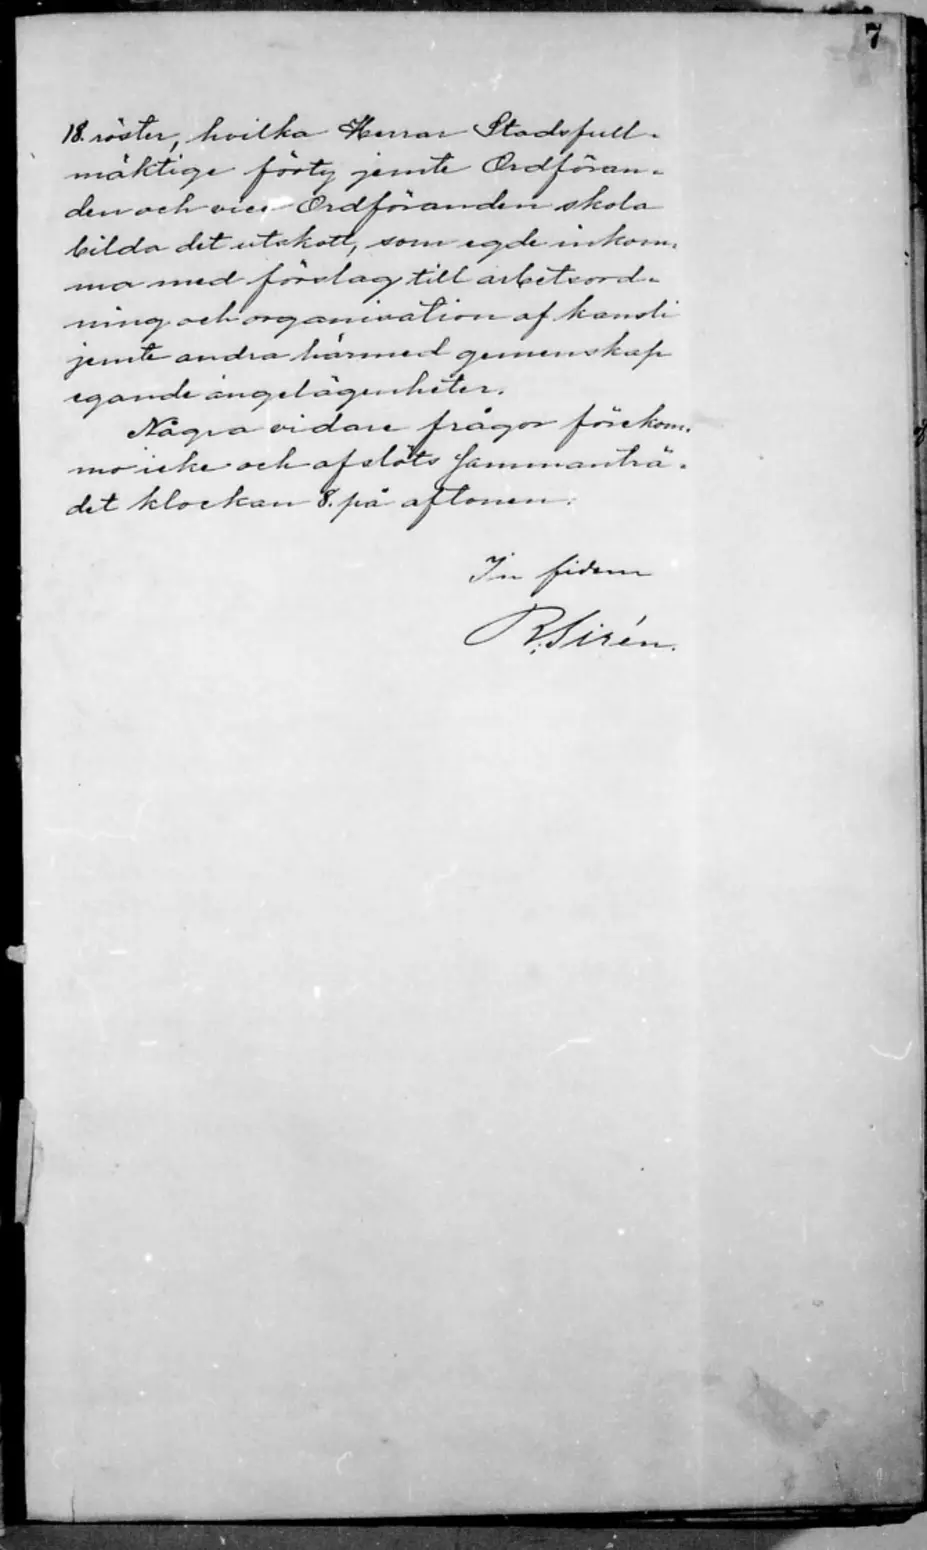 7
18. röster, hvilka Herrar Stadsfull-
mäktige förty jemte Ordföran-
den och vice Ordföranden skola
bilda det utskott, som egde inkom-
ma med förslag till arbetsord-
ning och organisation af kansli
jemte andra härmed gemenskap
egande angelägenheter.
Några vidare frågor förekom-
mo icke och afslöts sammanträ-
det klockan 8. på aftonen.
In fidem
R. Sirén.